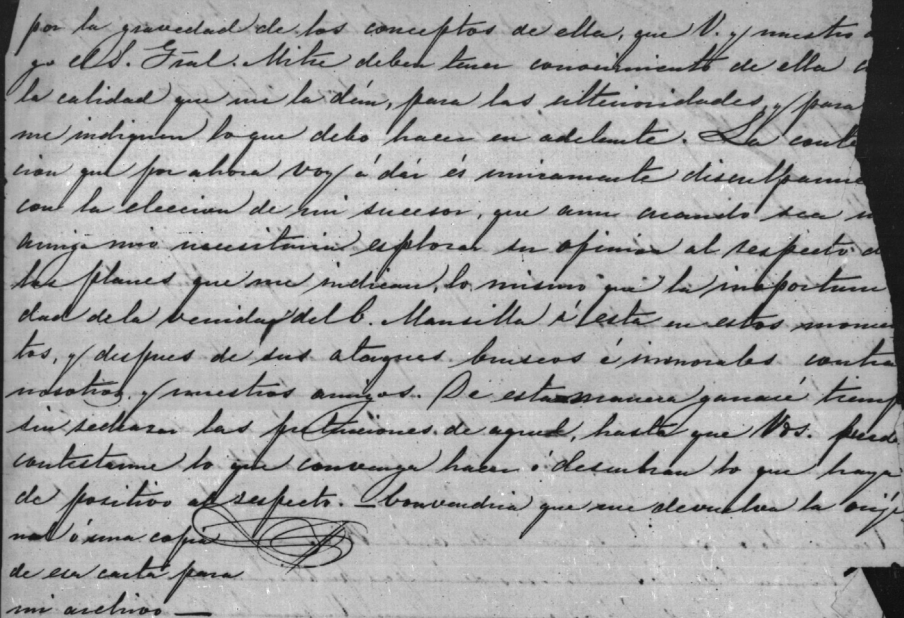 por la gravedad de los conceptos de ella, que V. y nuestro
go el S. Gral. Mitre deben tener conocimiento de ella
la calidad que me la dán, para las ulterioridades, y para
me indiquen lo que debo hacer en adelante. La conte
cion que por ahora voy á dár és unicamente disculparme
con la eleccion de mi sucesor, que aun cuando sea
amigo mio necesitaria esplorar su opinion al respecto de
los planes que me indican, lo mismo que la inoportuni
dad de la venida del C. Mansilla á esta en estos momen
tos, y despues de sus ataques bruscos é inmorales contra
nosotros y nuestros amigos. De esta manera ganaré tiemp
sin rechazar las pretenciones de aquel, hasta que Vds. pueda
contestarme lo que convenga hacer ó descubran lo que haya
de positivo al respecto. — Convendria que me devuelva la orije
nal ó una copia
de esa carta para
mi archivo —